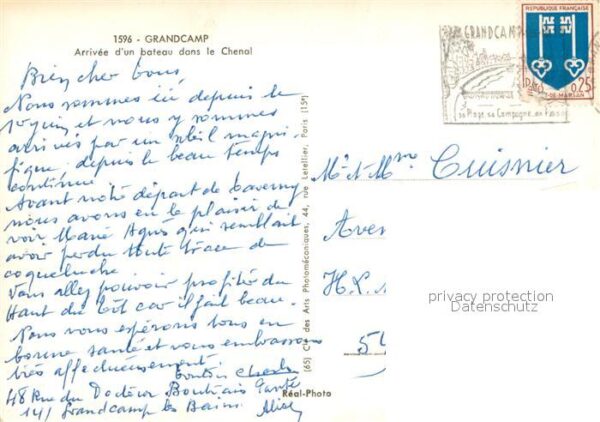 1596 - GRANDCAMP
Arrivée d'un bateau dans le Chenal
Bien cher tous,
Nous sommes ici depuis le
juin et nous y sommes
arrivés par un soleil magni-
fique. depuis le beau temps
continue
Avant notre départ de Taverny
nous avons eu le plaisir de
voir Marie Agnès qui semblait
avoir perdu toute trace de
coqueluche.
Vous allez pouvoir profiter du
Haut du Côt car il fait beau.
Nous vous espérons tous en
bonne santé et vous embrassons
très affectueusement
48 Rue du Docteur Boutrois
14/ Grandcamp les Bains
(65) Cie des Arts Photomécaniques, 44, rue Letellier, Paris (15e)
Réal-Photo
GRANDCAMP
sa Plage, sa Campagne,
REPUBLIQUE FRANÇAISE
0,25
MONT-DE-MARSAN
Mr et Mme Cuisnier
Aves
H.L.
54
privacy protection
Datenschutz